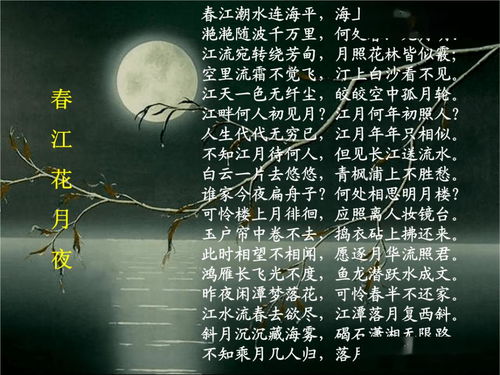 春江花月夜
春江潮水连海平，海
滟滟随波千万里，何
江流宛转绕芳甸，月照花林皆似霰；
空里流霜不觉飞，汀上白沙看不见。
江天一色无纤尘，皎皎空中孤月轮。
江畔何人初见月？江月何年初照人？
人生代代无穷已，江月年年只相似。
不知江月待何人，但见长江送流水。
白云一片去悠悠，青枫浦上不胜愁。
谁家今夜扁舟子？何处相思明月楼？
可怜楼上月徘徊，应照离人妆镜台。
玉户帘中卷不去，捣衣砧上拂还来。
此时相望不相闻，愿逐月华流照君。
鸿雁长飞光不度，鱼龙潜跃水成文。
昨夜闲潭梦落花，可怜春半不还家。
江水流春去欲尽，江潭落月复西斜。
斜月沉沉藏海雾，碣石潇湘无限路
不知乘月几人归，落